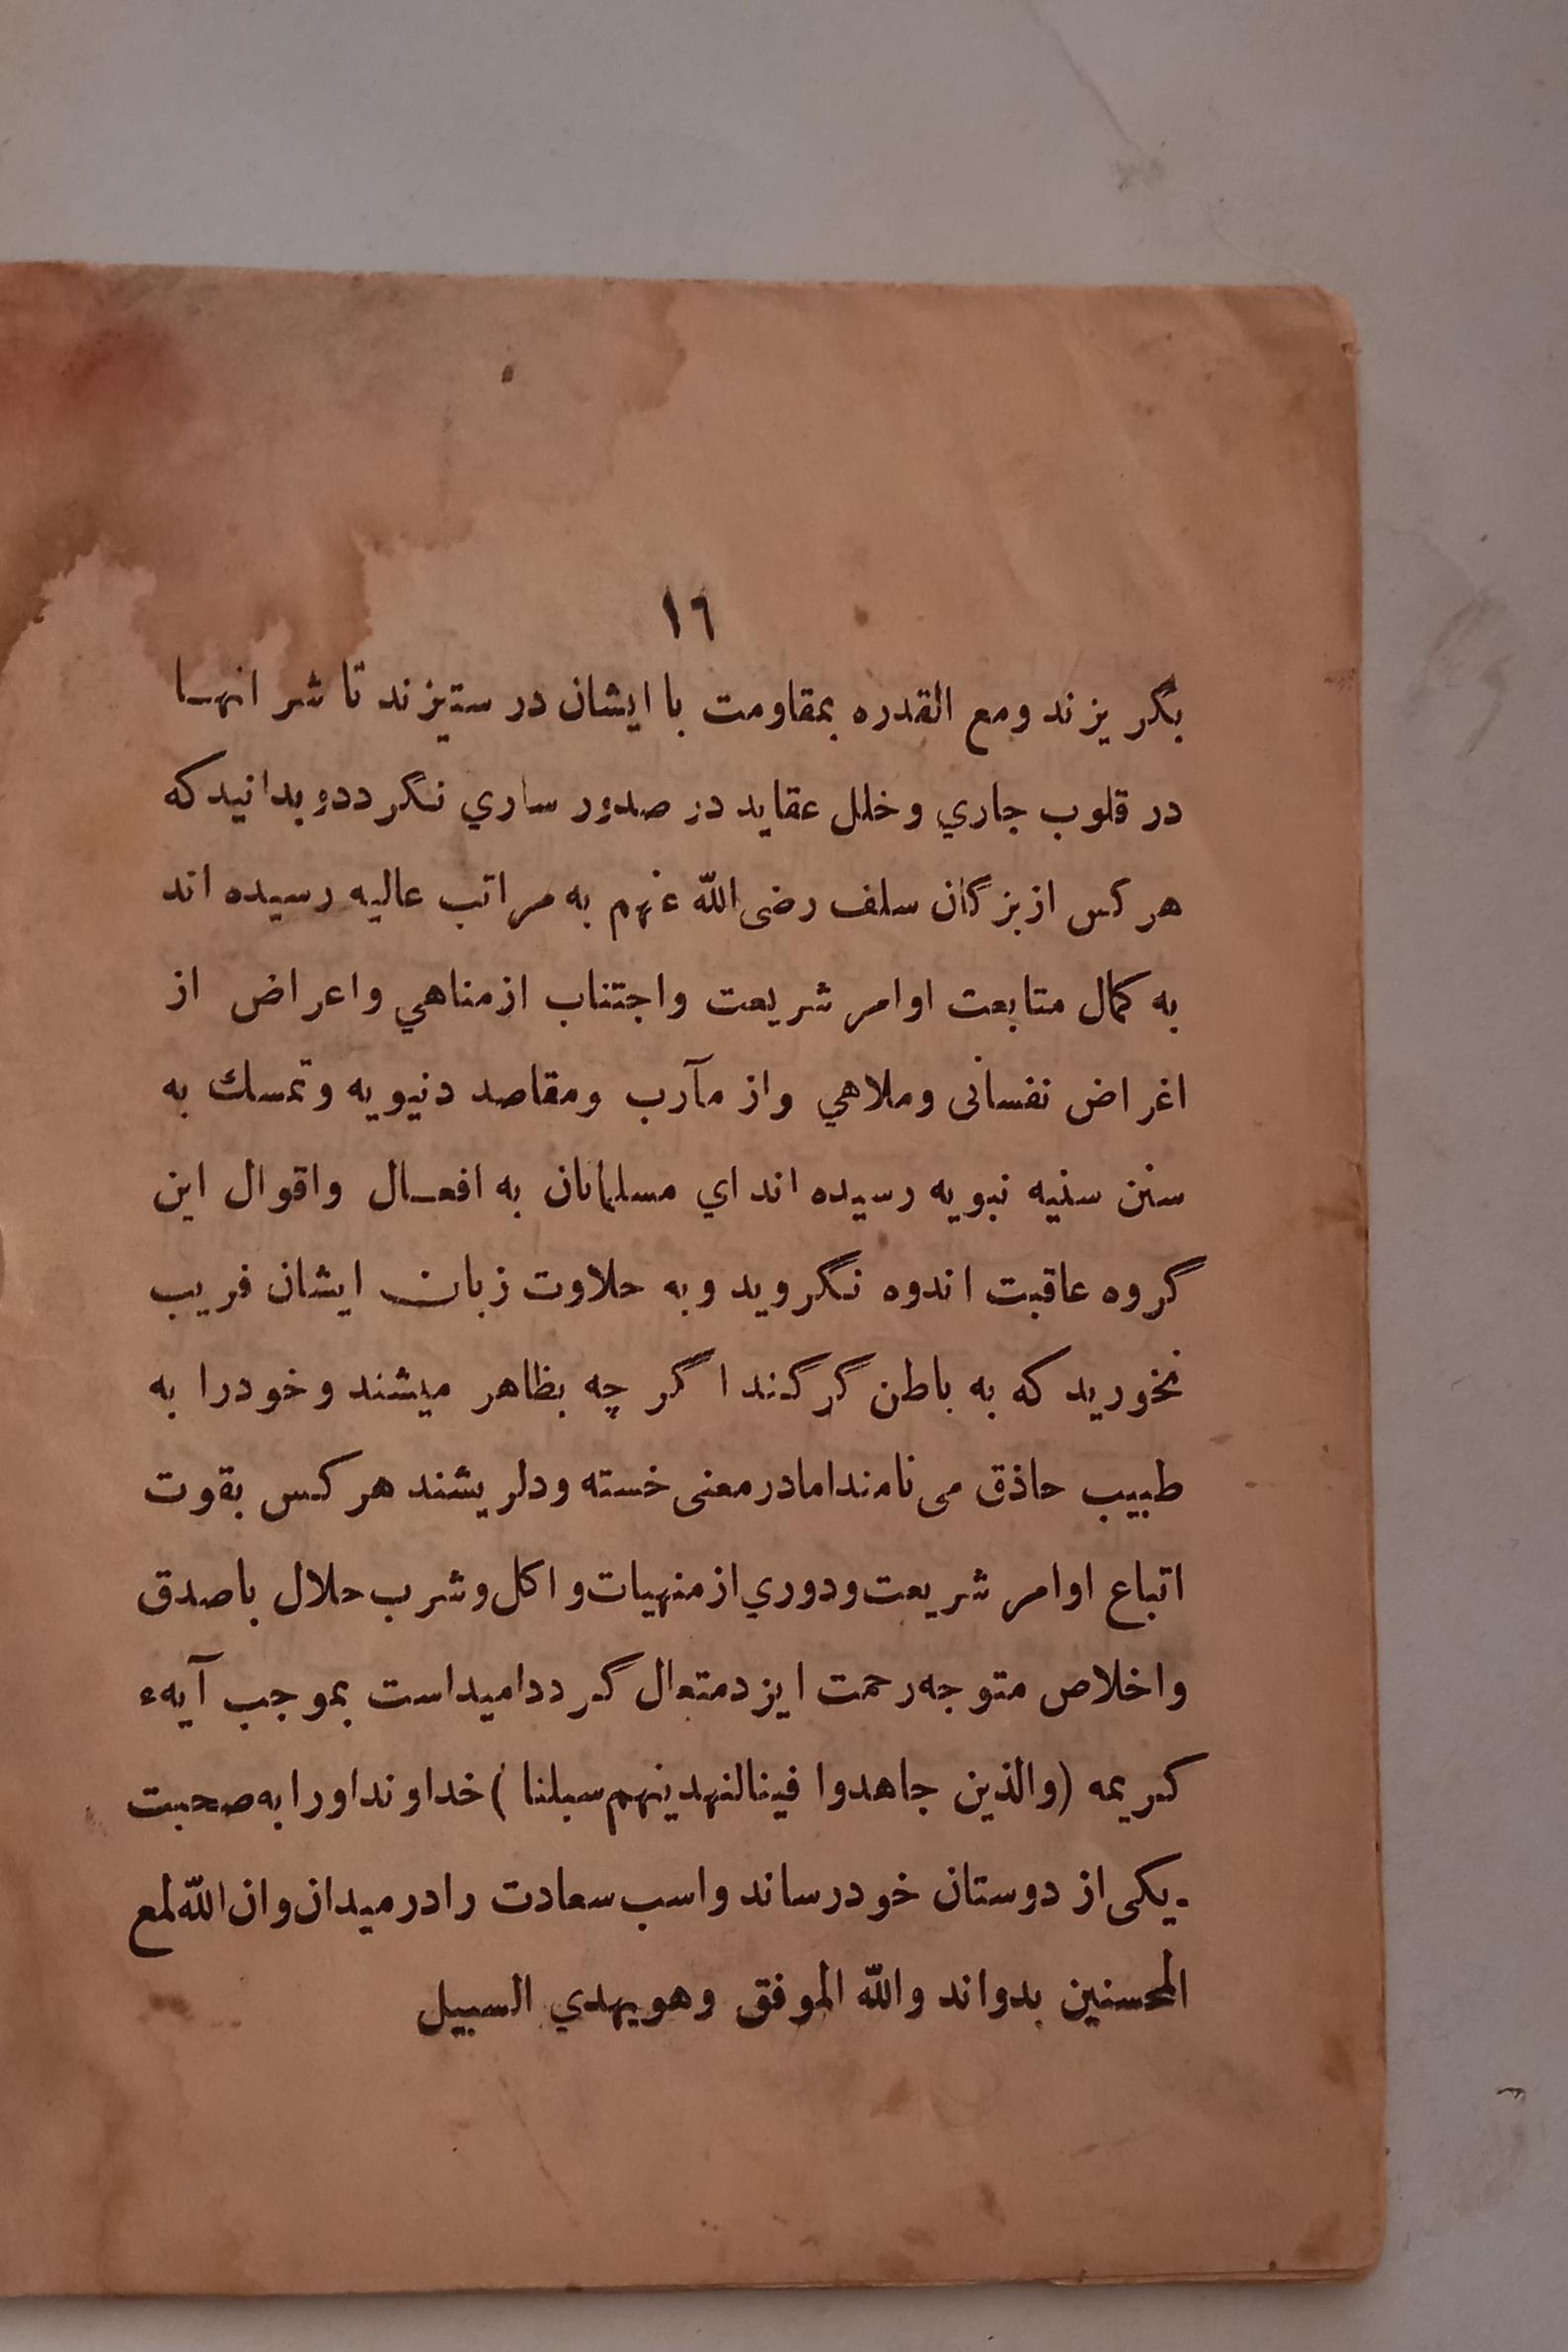 ١٦
بگریزند ومع القدره بمقاومت با ایشان در ستیزند تا شر انهـا
در قلوب جاري وخلل عقاید در صدور ساري نگردد و بدانید که
هر کس از بزرگان سلف رضی الله عنهم به مراتب عالیه رسیده اند
به کمال متابعت اوامر شریعت واجتناب از مناهي واعراض از
اغراض نفسانی وملاهي واز مآرب ومقاصد دنیویه وتمسك به
سنن سنیه نبویه رسیده اند اي مسلمانان به افعـال واقوال این
گروه عاقبت اندوه نگروید وبه حلاوت زبان ایشان فریب
نخورید که به باطن گرگند اگر چه بظاهر میشند وخودرا به
طبیب حاذق می نامند اما در معنی خسته ودلریشند هر کس بقوت
اتباع اوامر شریعت ودوري از منهیات و اکل وشرب حلال باصدق
واخلاص متوجه رحمت ایزد متعال گردد امید است بموجب آیهء
کریمه (والذین جاهدوا فینالنهدینهم سبلنا) خداوند اورا به صحبت
یکی از دوستان خود رساند واسب سعادت را در میدان وان الله لمع
المحسنین بدواند والله الموفق وهو یهدي السبیل